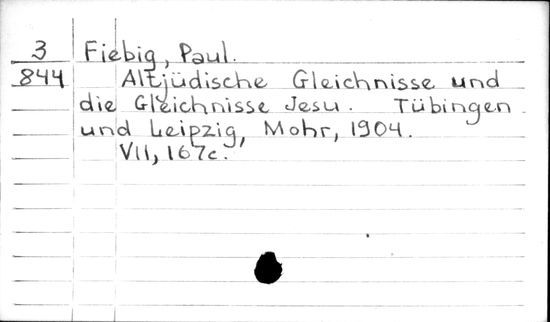 3 Fiebig, Paul.
844 Altjüdische Gleichnisse und
die Gleichnisse Jesu. Tübingen
und Leipzig, Mohr, 1904.
VII, 167c.